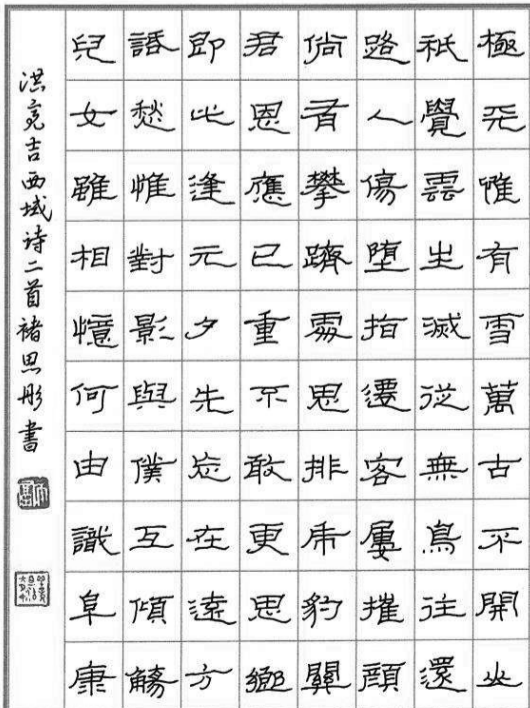 極天惟有雪萬古不開山
祇覺雲生滅從無鳥往還
路人傷墮指遷客屢摧顏
倘攀躋處思排虎豹關
君恩應已重不敢更思鄉
即此逢元夕先忘在遠方
話愁惟對影與僕互傾觴
兒女雖相憶何由識阜康
洪亮吉西域诗二首褚思彤書